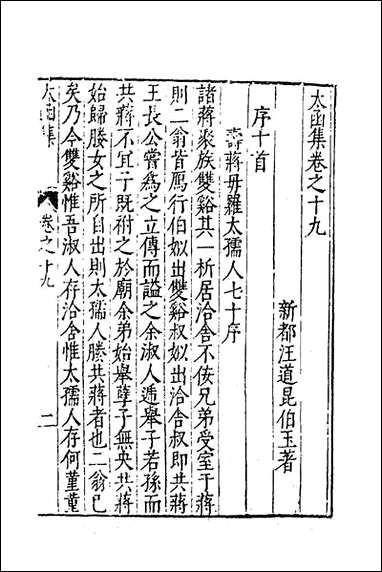 太函集卷之十九
新都汪道昆伯玉著
序十首
壽蔣母羅太孺人七十序
諸蔣聚族雙谿其一析居洽舍不佞兄弟受室于蔣
則二翁皆鴈行伯姒出雙谿叔姒出洽舍叔即共蔣
王長公嘗為之立傳而謚之余淑人遞舉子若孫而
共蔣不宜子既祔之於廟余弟始舉孽子無央共蔣
始歸媵女之所自出則太孺人媵共蔣者也二翁已
矣乃今雙谿惟吾淑人存洽舍惟太孺人存何菫菫
太函集
卷之十九
二